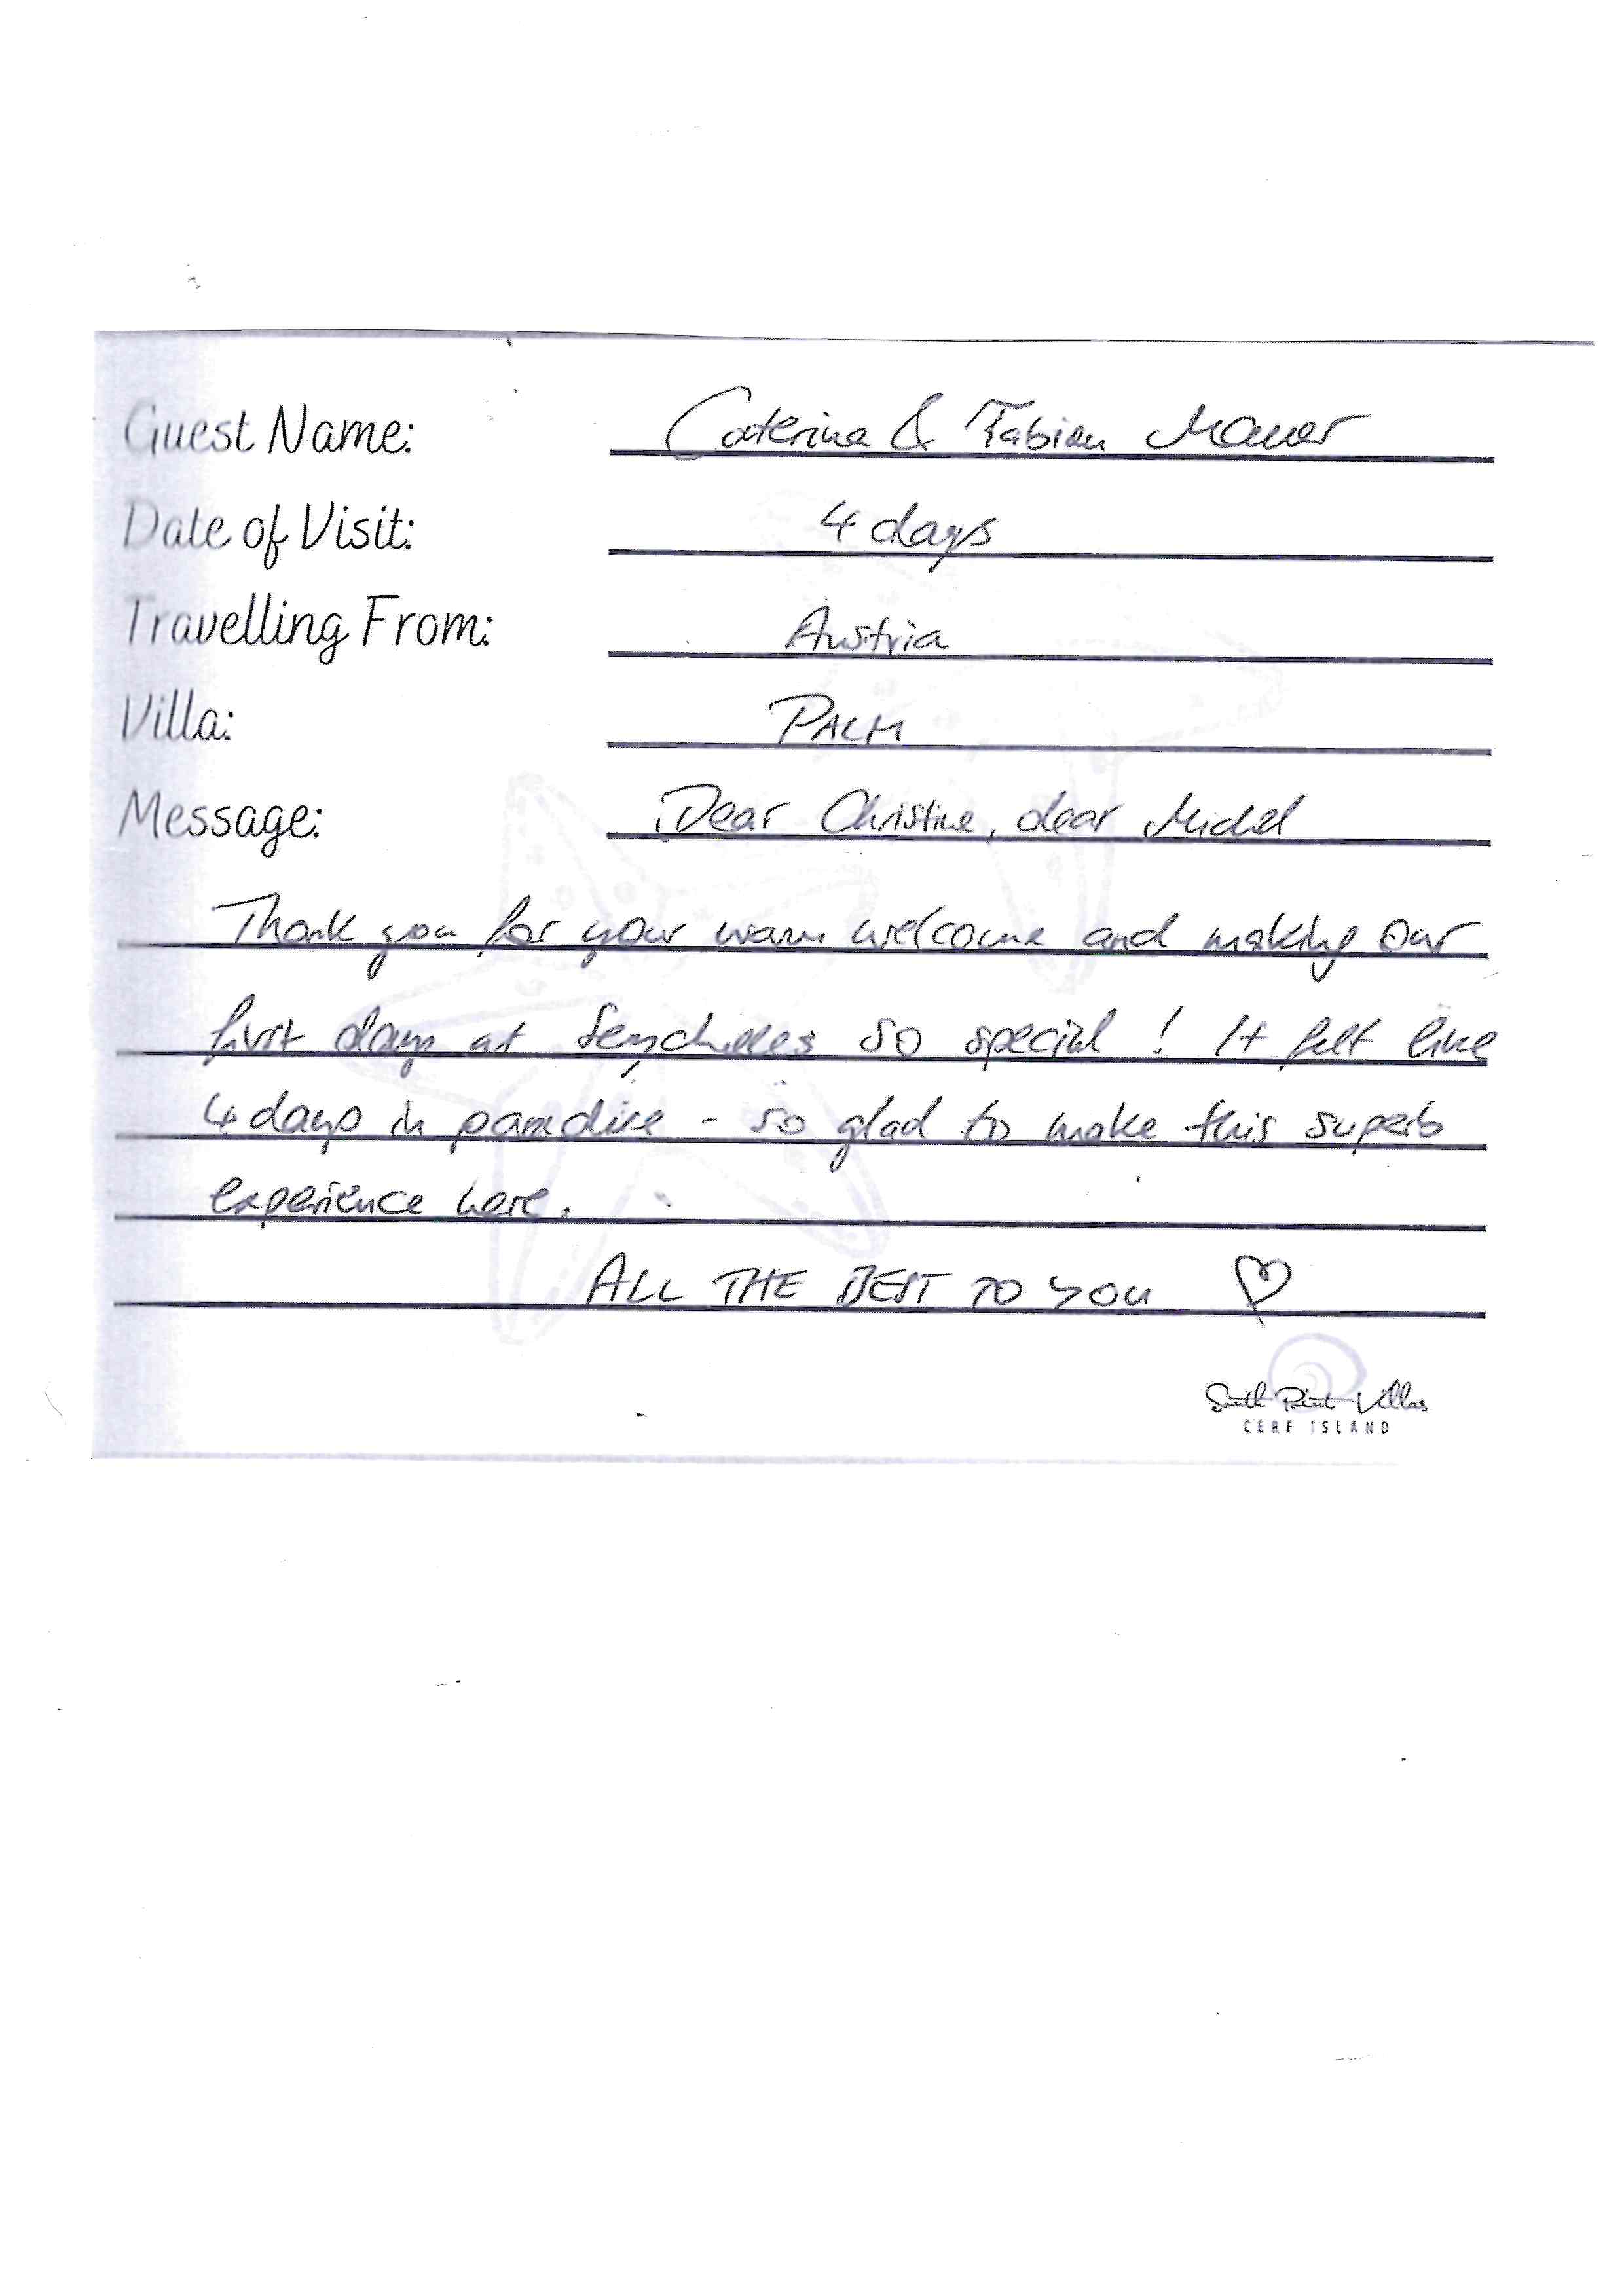 Guest Name: Caterina & Fabian
Date of Visit: 4 days
Travelling From: Austria
Villa: PALM
Message: Dear Christine, dear Michel
Thank you for your warm welcome and making our
first days at Seychelles so special! It felt like
4 days in paradise - so glad to make this superb
experience here.
ALL THE BEST TO YOU ♡
South Point Villas
CERF ISLAND